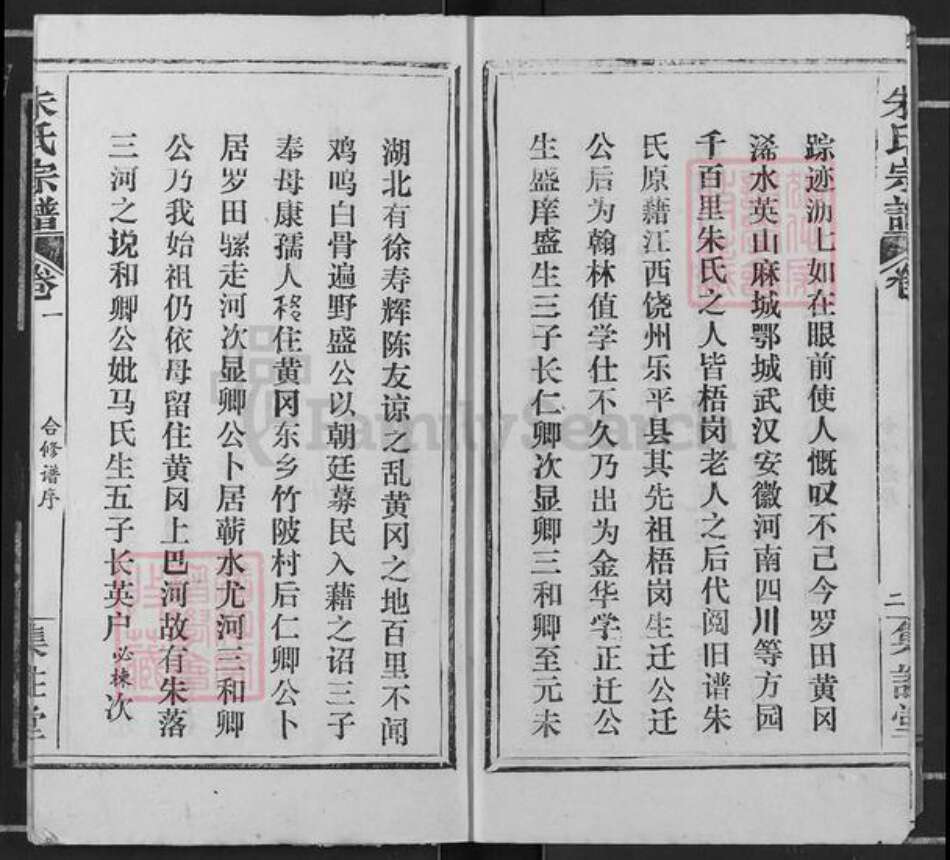 朱氏宗譜 卷
二 集註堂
踪迹沥七如在眼前使人慨叹不己今罗田黄冈
浠水英山麻城鄂城武汉安徽河南四川等方园
千百里朱氏之人皆梧岗老人之后代阅旧谱朱
氏原藉江西饶州乐平县其先祖梧岗生迁公迁
公后为翰林值学仕不久乃出为金华学正迁公
生盛庠盛生三子长仁卿次显卿三和卿至元未
湖北有徐寿辉陈友谅之乱黄冈之地百里不闻
鸡鸣白骨遍野盛公以朝廷募民入藉之诏三子
奉母康孺人移住黄冈东乡竹陂村后仁卿公卜
居罗田骡走河次显卿公卜居蕲水尤河三和卿
公乃我始祖仍依母留住黄冈上巴河故有朱落
三河之说和卿公妣马氏生五子长英户必栋次
朱氏宗譜 卷一
合修谱序
集註堂
FamilySearch